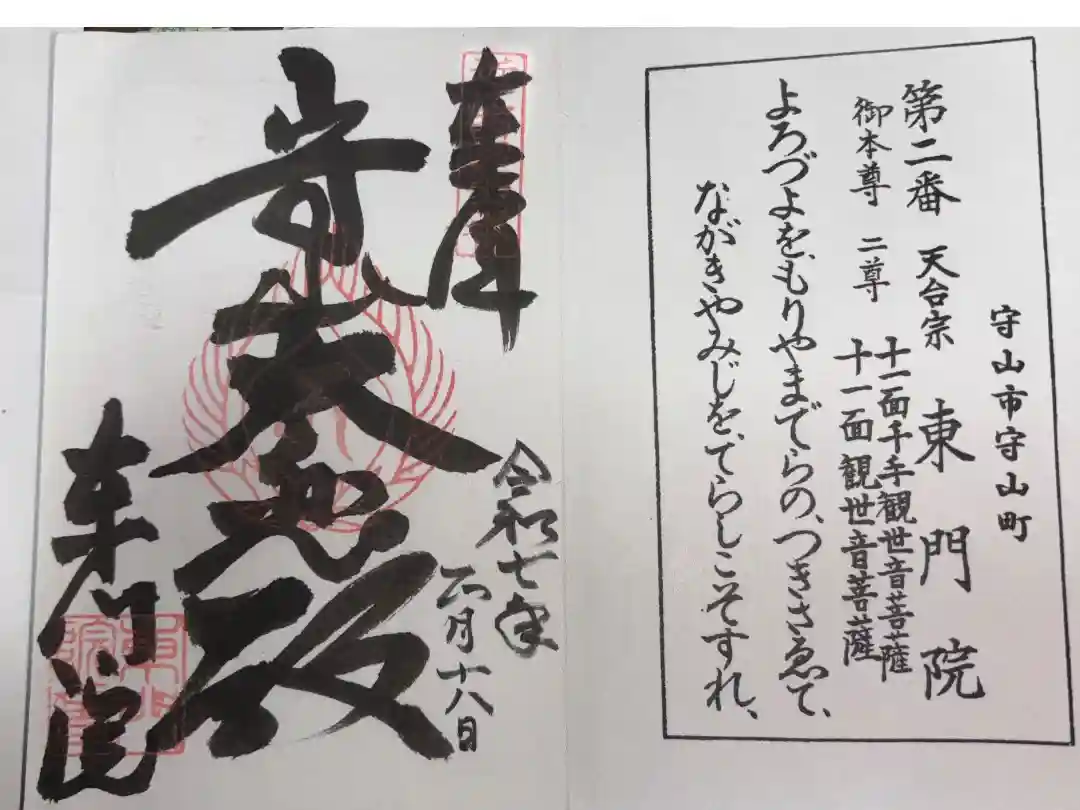 守山市守山町
第二番 天台宗 東門院
御本尊 二尊 十一面千手観世音菩薩
十一面観世音菩薩
よろづよを、もりやまでらの、つきさゑて、
ながきやみじを、てらしこそすれ、
奉拝
令和七年
六月十八日
大悲殿
東門院